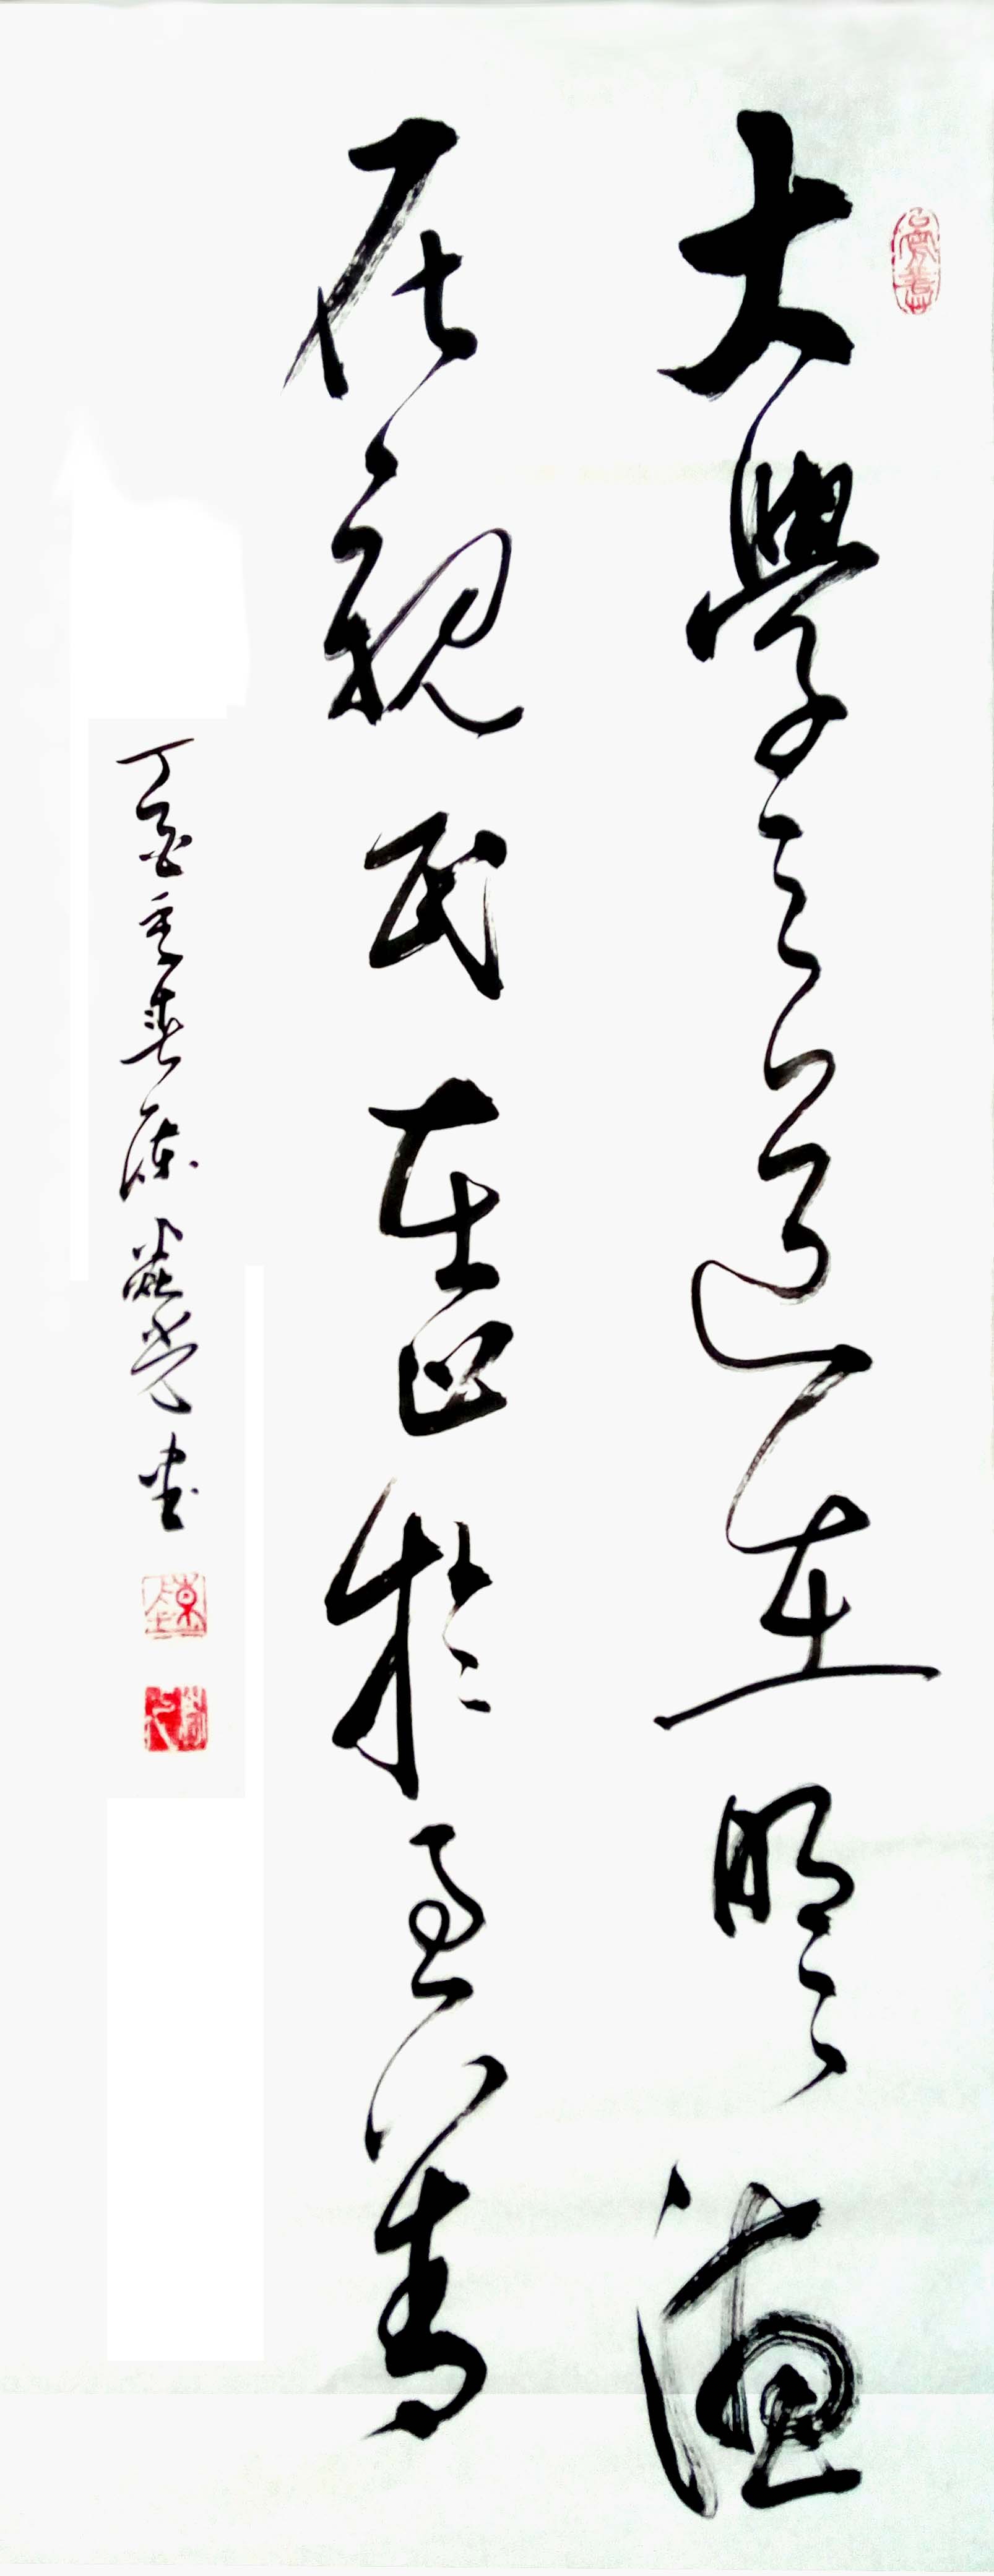 大學之道在明明德
在親民在止於至善
丁酉季春陳書